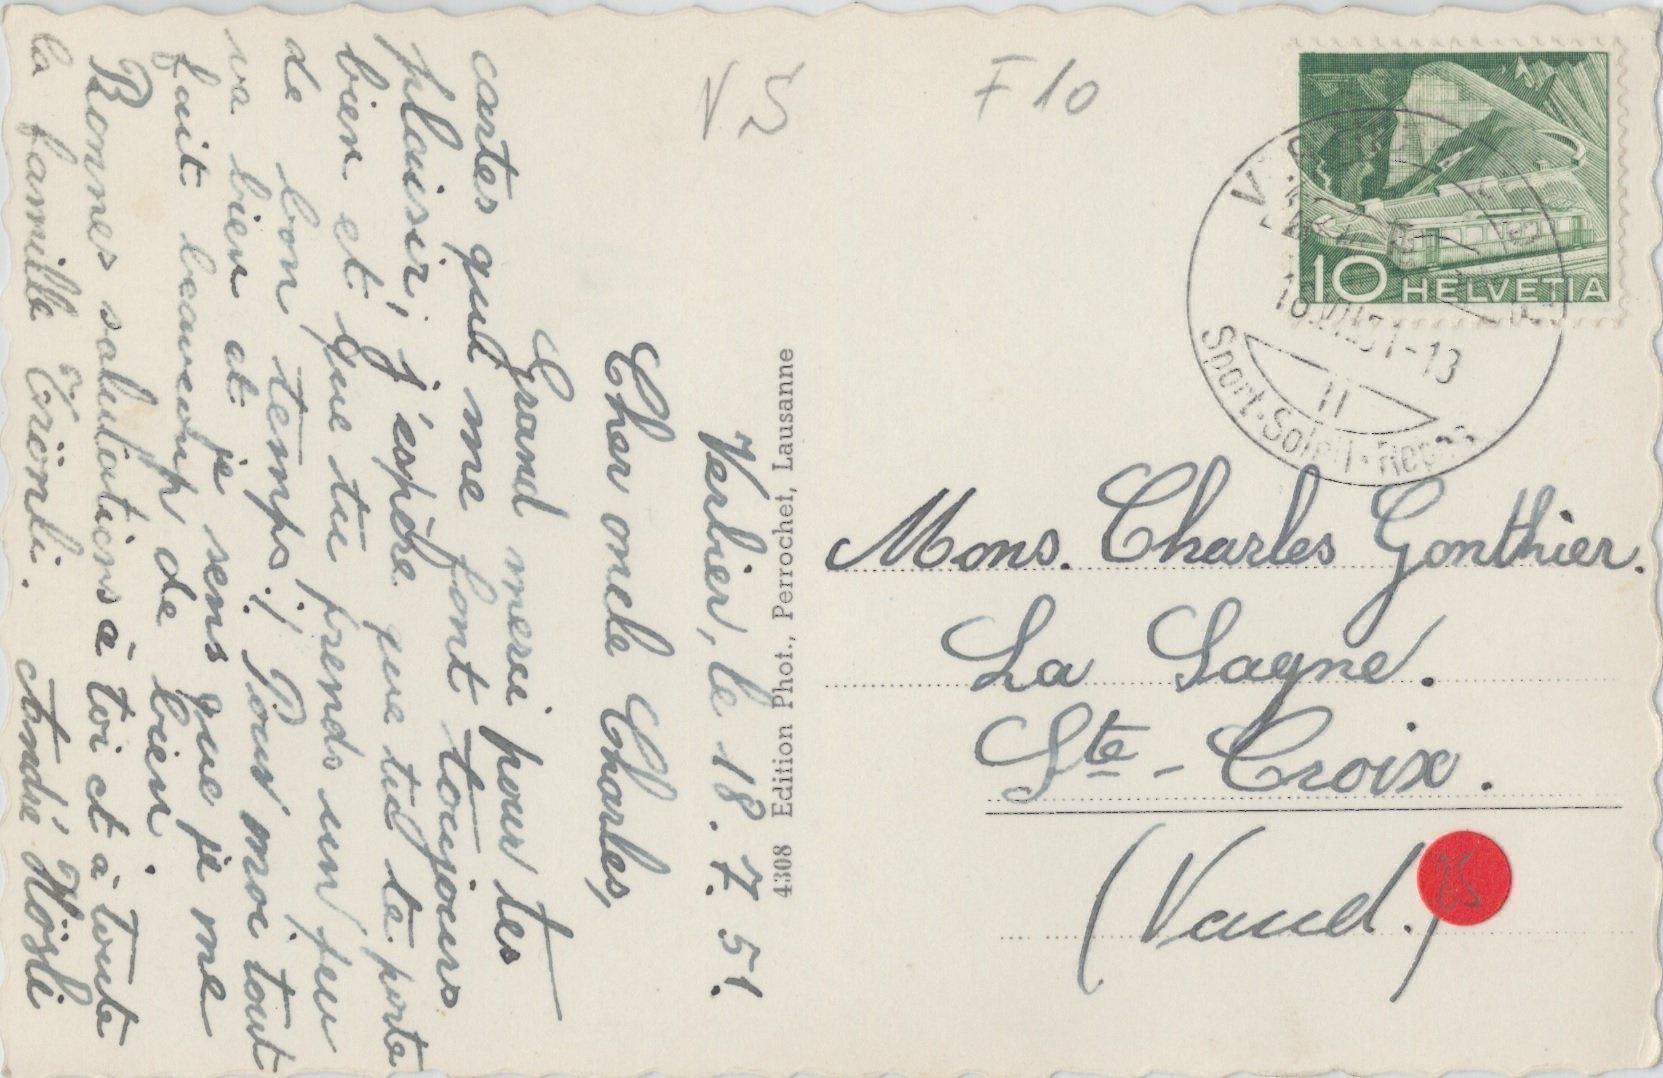 Verbier, le 18.7.51.
Cher oncle Charles,
Grand merci pour tes
cartes qui me font toujours
plaisir, j'espère que tu te porte
bien et que tu prends un peu
de bon temps. Pour moi tout
va bien et je sens que je me
fait beaucoup de bien.
Bonnes salutations à toi et à toute
la famille André Hösli
4308 Edition Phot., Perrochet, Lausanne
F 10
10 HELVETIA
-13
II
Sport-Soleil-Repos
Mons. Charles Gonthier.
La Sagne.
Ste-Croix.
(Vaud.)